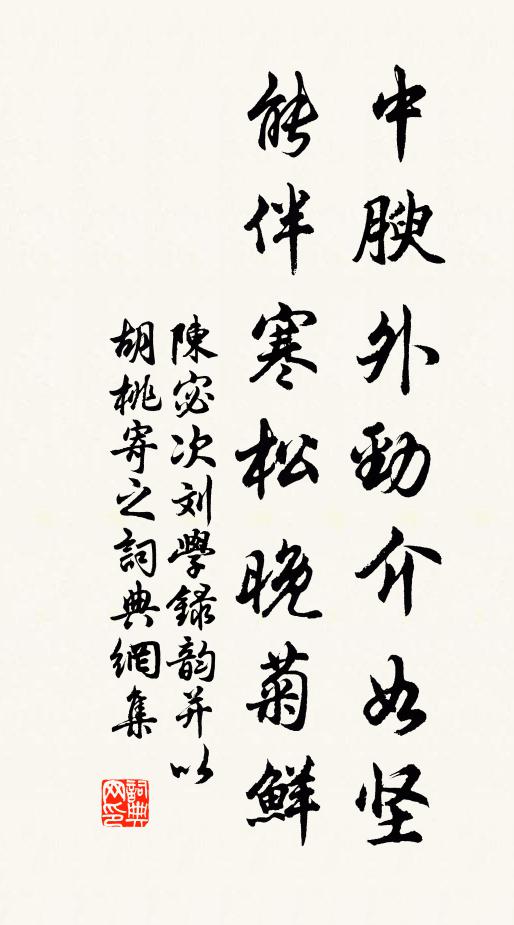 中腴外勁介如坚
能伴寒松晚菊鮮
陳宓次刘學録韵并以
胡桃寄之詞典網集
詞典网印